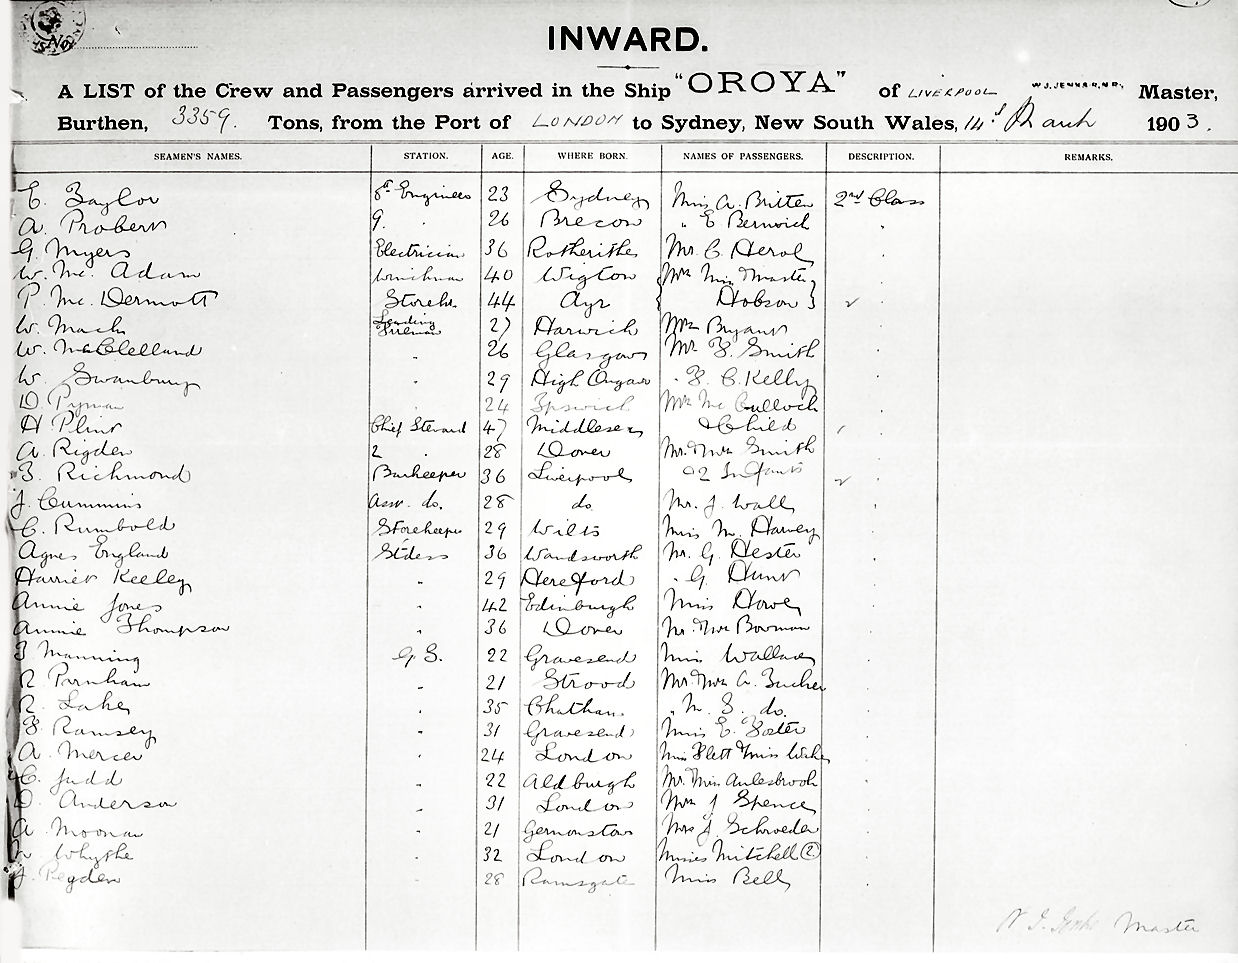 INWARD.
A LIST of the Crew and Passengers arrived in the Ship "OROYA" of LIVERPOOL W.J. JENKS, R.N.R., Master,
Burthen, 3359. Tons, from the Port of LONDON to Sydney, New South Wales, 14th March 1903.
SEAMEN'S NAMES. STATION. AGE. WHERE BORN. NAMES OF PASSENGERS. DESCRIPTION. REMARKS.
E. Taylor 8th Engineer 23 Sydney Miss A. Britten 2nd Class
A. Probert 9. " 26 Brecon " E Berwick "
G. Myers Electrician 36 Rotherithe Mr. C. Herol "
W. Mc. Adam Winchman 40 Wigton Mrs Miss Master "
P. Mc. Dermott Storekr. 44 Ayr Hobson "
W. Mack Leading Fireman 27 Harwich Mrs Bryant "
W. McClelland " 26 Glasgow Mr F. Smith "
W. Swanbury " 29 High Ongar " F. C. Kelly "
D. Pyman " 24 Ipswich Mrs Mc Culloch "
H Plint Chief Steward 47 Middlesex & Child "
A. Rigden 2 " 28 Dover Mr. Mrs Smith "
T. Richmond Barkeeper 36 Liverpool & 2 Infants "
J. Cummins Asst. do. 28 do Mr. J. Wall "
C. Rumbold Storekeeper 29 Wilts Miss M. Harvey "
Agnes England Stdess 36 Wandsworth Mr. G. Hester "
Harriet Keeley " 29 Hereford " G Hunt "
Annie Jones " 42 Edinburgh Miss Howe "
Annie Thompson " 36 Dover Mr. Mrs Bowman "
T Manning G. S. 22 Gravesend Miss Wallace "
R. Parnham " 21 Strood Mr Mrs A. Bucher "
R. Lake " 35 Chatham " M. S. do. "
F. Ramsey " 31 Gravesend Miss E. Foster "
A. Mercer " 24 London Miss Flett & Miss "
C. Judd " 22 Aldburgh Mr. Mrs "
D. Anderson " 31 London Mrs J Spence "
A Moonan " 21 Mrs J. Schroeder "
Whythe " 32 London Misses Mitchell (2) "
J. Regden " 28 Ramsgate Miss Bell "
Master